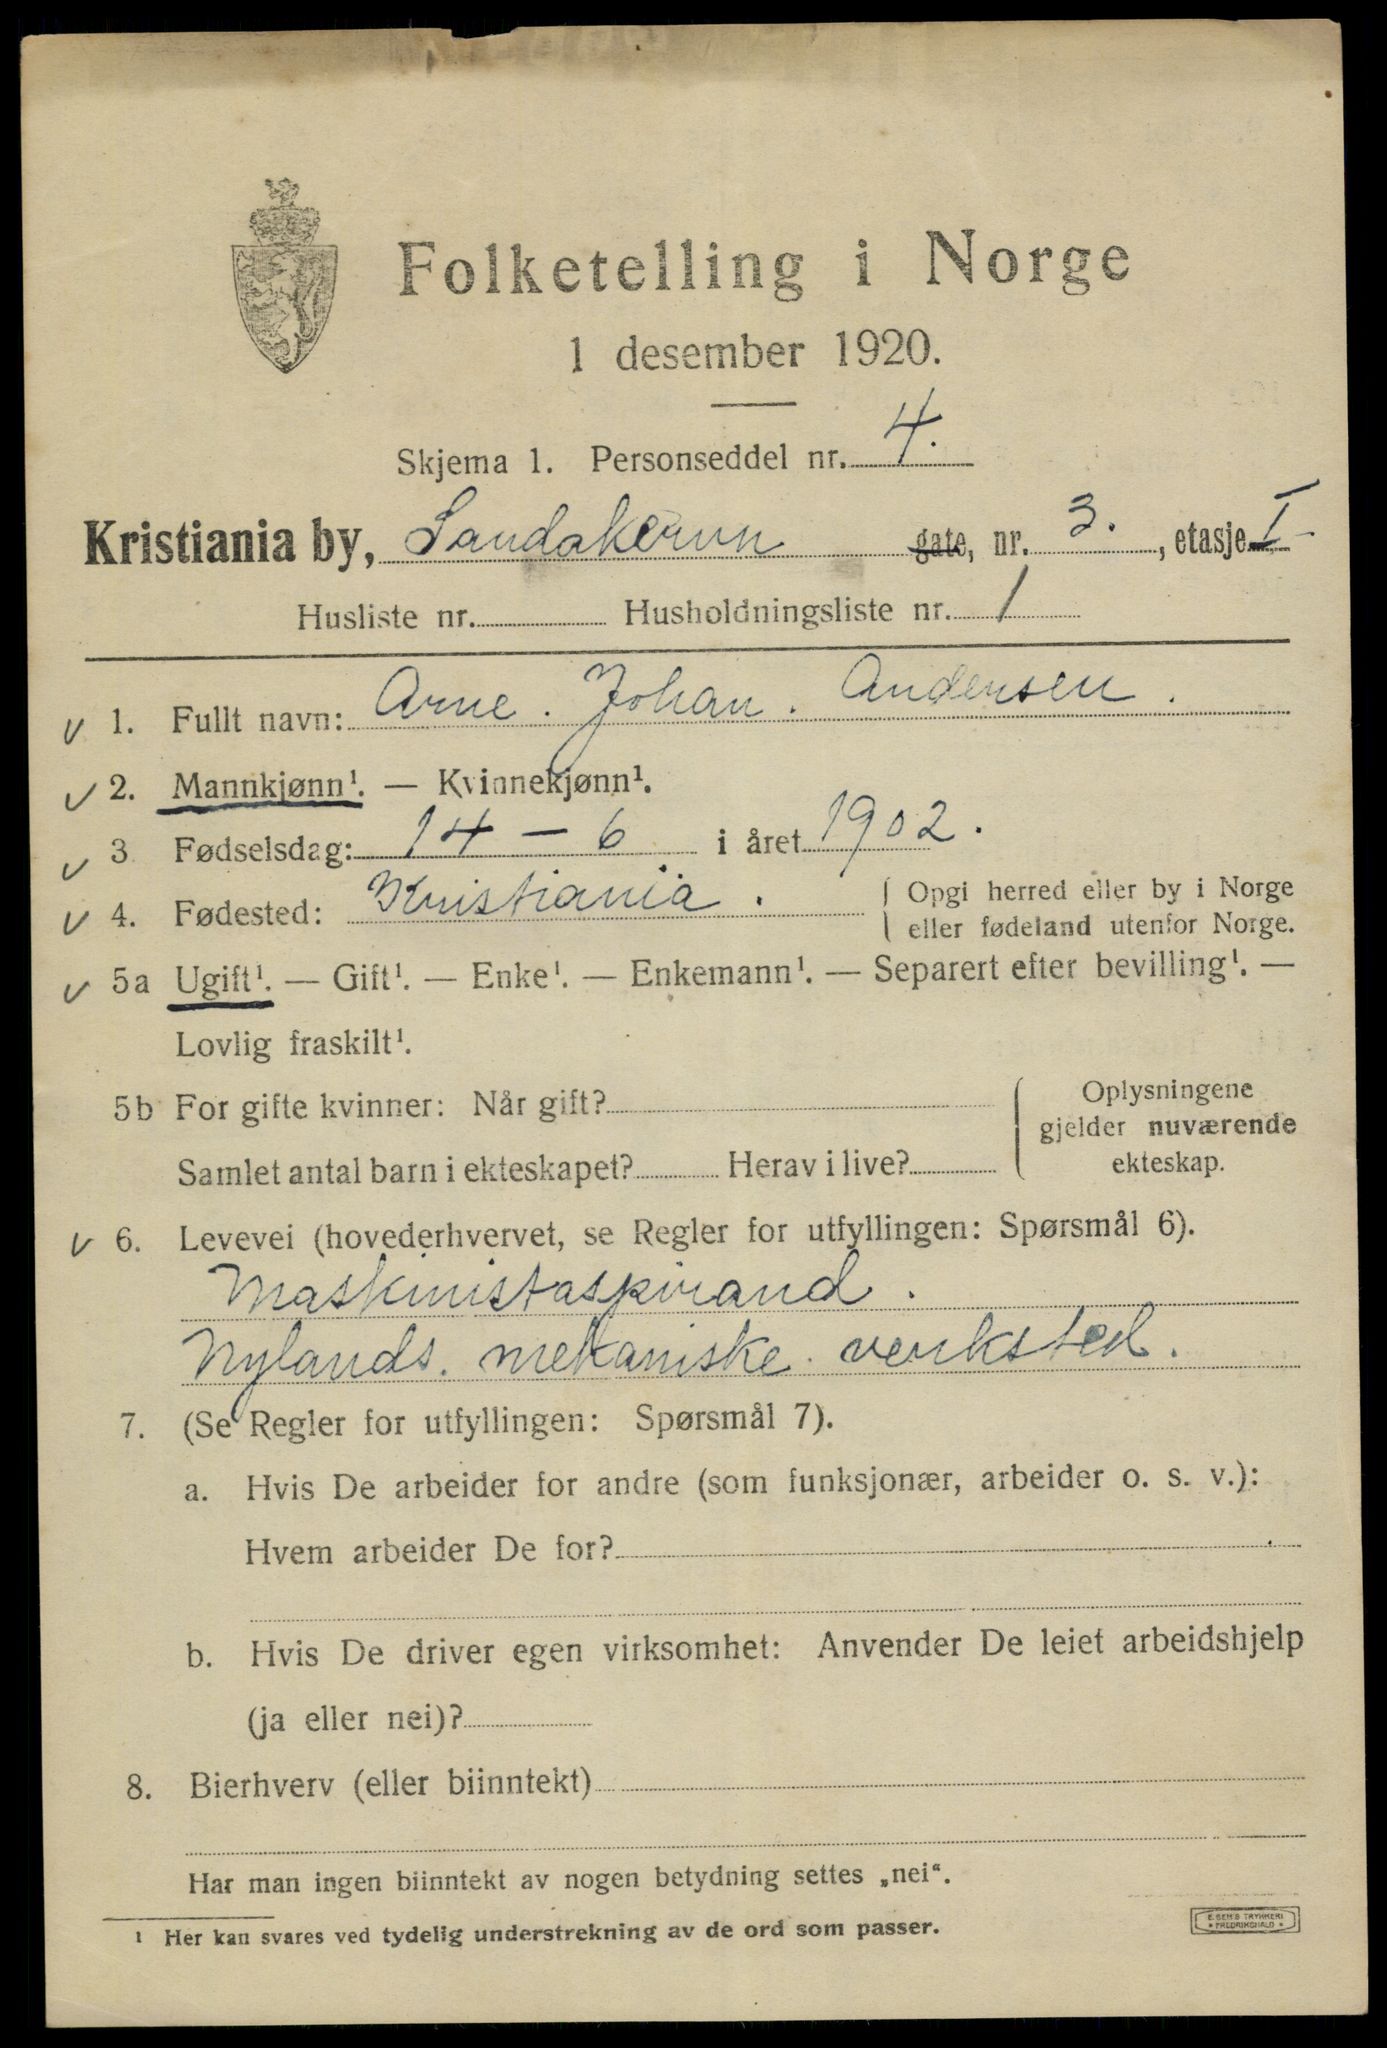 Folketelling i Norge
1 desember 1920.
Skjema 1. Personseddel nr. 4.
Kristiania by, Sandakervn gate, nr. 3. , etasje I
Husliste nr. Husholdningsliste nr. 1
v 1. Fullt navn: Arne. Johan. Andersen.
v 2. Mannkjønn¹. — Kvinnekjønn¹.
v 3 Fødselsdag: 14 – 6 i året 1902.
v 4. Fødested: Kristiania. Opgi herred eller by i Norge
eller fødeland utenfor Norge.
v 5a Ugift¹. — Gift¹. — Enke¹. — Enkemann¹. — Separert efter bevilling¹. —
Lovlig fraskilt¹.
5b For gifte kvinner: Når gift? Oplysningene
gjelder nuværende
Samlet antal barn i ekteskapet? Herav i live? ekteskap.
v 6. Levevei (hovederhvervet, se Regler for utfyllingen: Spørsmål 6).
Maskinistaspirand.
Nylands. mekaniske. verksted.
7. (Se Regler for utfyllingen: Spørsmål 7).
a. Hvis De arbeider for andre (som funksjonær, arbeider o. s. v.):
Hvem arbeider De for?
b. Hvis De driver egen virksomhet: Anvender De leiet arbeidshjelp
(ja eller nei)?
8. Bierhverv (eller biinntekt)
Har man ingen biinntekt av nogen betydning settes „nei“.
¹ Her kan svares ved tydelig understrekning av de ord som passer.
E. SEM'S TRYKKERI
• FREDRIKSHALD •